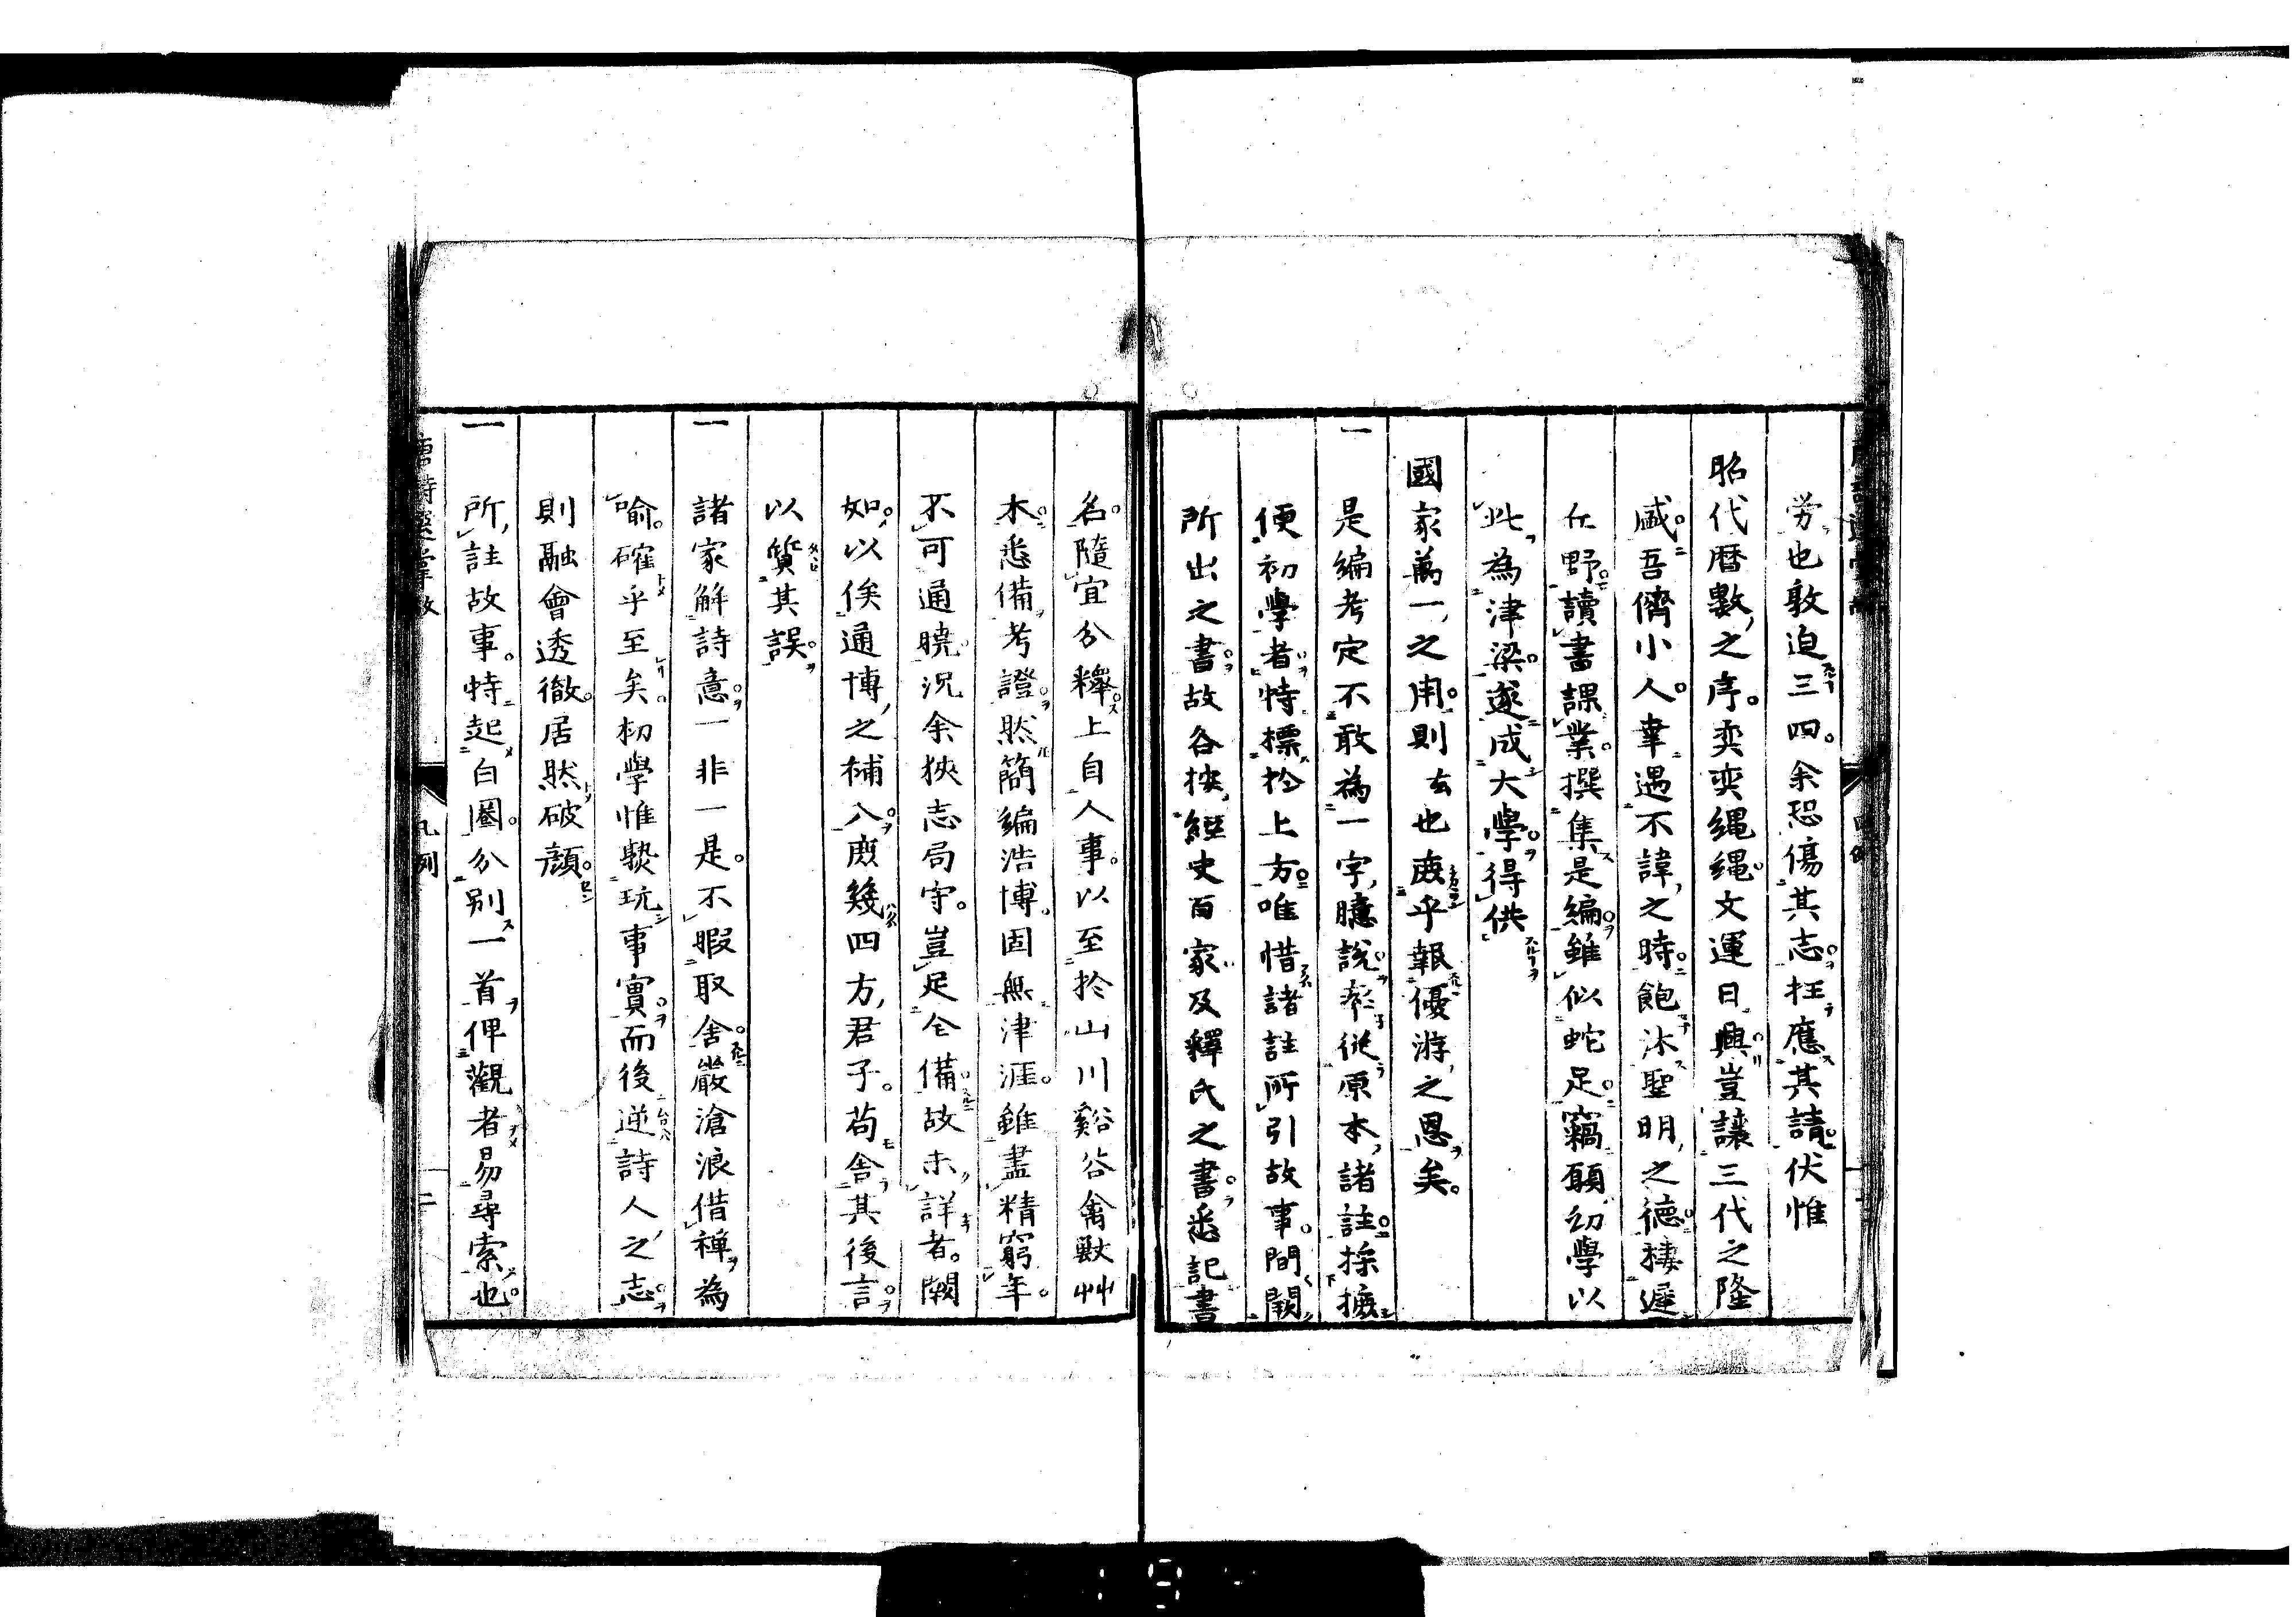 労也敦迫三四余恐傷其志枉應其請伏惟
昭代暦數之序奕奕縄縄文運日興豈讓三代之隆
盛吾儕小人幸遇不諱之時飽沐聖明之德棲遲
在野讀書課業撰集是編雖似蛇足竊願幼學以
此為津梁遂成大學得供
國家萬一之用則去也庶乎報優游之恩矣
一是編考定不敢為一字臆說率從原本諸註採摭
便初學者特標於上方唯惜諸註所引故事間闕
所出之書故各按經史百家及釋氏之書悉記書
名隨宜分釋上自人事以至於山川谿谷禽獸艸
木悉備考證然簡編浩博固無津涯雖盡精窮年
不可通曉況余狹志局守豈足仝備故未詳者闕
如以俟通博之補入庶幾四方君子苟舍其後言
以質其誤
一諸家解詩意一非一是不暇取舍嚴滄浪借禅為
喻確乎至矣初學惟熟玩事實而後逆詩人之志
則融會透徹居然破顔
一所註故事特起白圈分別一首俾觀者易尋索也
凡例
二